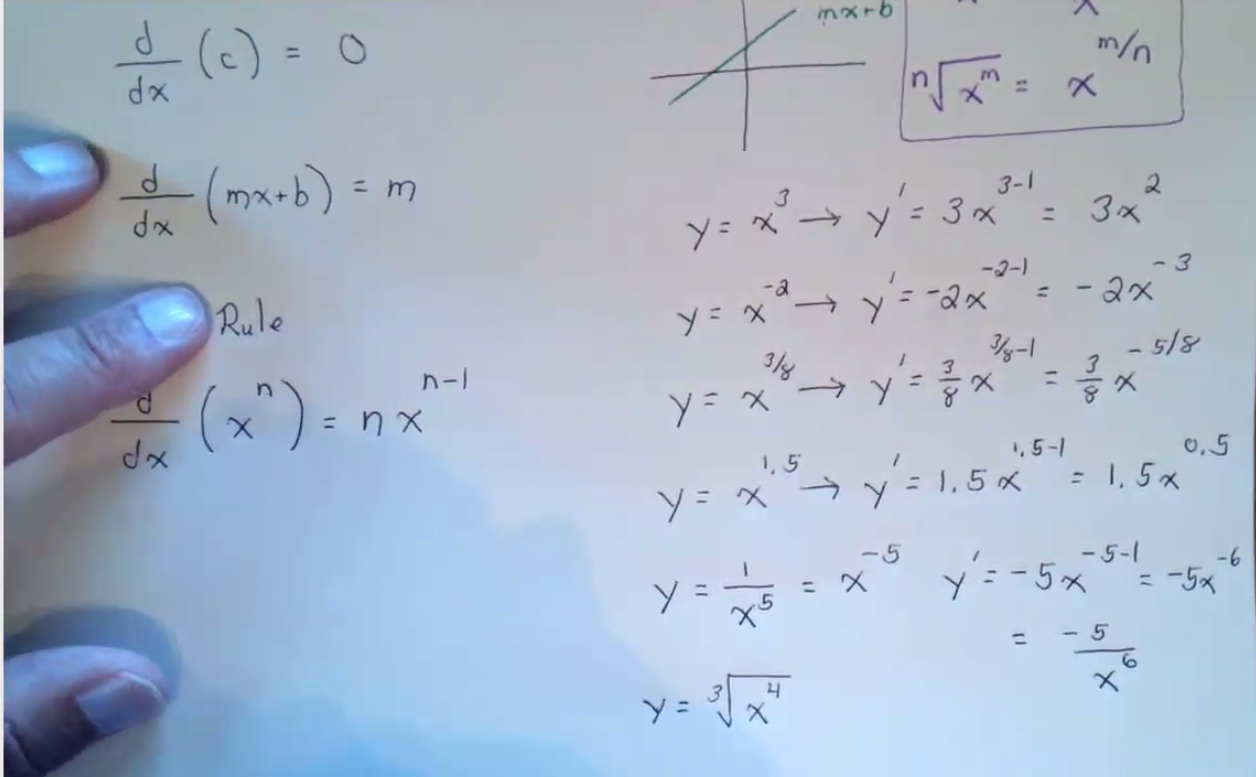 d/dx (c) = 0
d/dx (mx+b) = m
Rule
d/dx (xⁿ) = n xⁿ⁻¹
mx+b
ⁿ√(xᵐ) = x^(m/n)
y = x³ → y' = 3x³⁻¹ = 3x²
y = x⁻² → y' = -2x⁻²⁻¹ = -2x⁻³
y = x^(3/8) → y' = 3/8 x^(3/8-1) = 3/8 x^(-5/8)
y = x^(1.5) → y' = 1.5x^(1.5-1) = 1.5x^(0.5)
y = 1/x⁵ = x⁻⁵ y' = -5x⁻⁵⁻¹ = -5x⁻⁶
= -5/x⁶
y = ³√(x⁴)